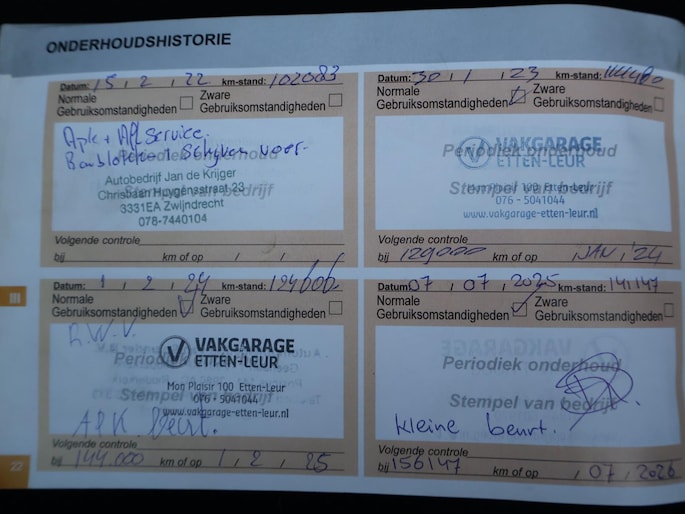 ONDERHOUDSHISTORIE
Datum: 15, 2, 22 km-stand: 102083
Normale Gebruiksomstandigheden
Zware Gebruiksomstandigheden
Apk + Afl Service.
Schijven voor.
Periodiek onderhoud
Autobedrijf Jan de Krijger
Christiaan Huygensstraat 23
Stempel van bedrijf
3331EA Zwijndrecht
078-7440104
Volgende controle
bij km of op / /
Datum: 30, 1, 23 km-stand:
Normale Gebruiksomstandigheden
Zware Gebruiksomstandigheden
VAKGARAGE
Periodiek onderhoud
ETTEN-LEUR
Mon Plaisir 100 Etten-Leur
Stempel van bedrijf
076 - 5041044
www.vakgarage-etten-leur.nl
Volgende controle
bij 129000 km of op JAN '24
Datum: 1, 2, 24 km-stand: 124606
Normale Gebruiksomstandigheden
Zware Gebruiksomstandigheden
VAKGARAGE
Periodiek onderhoud
ETTEN-LEUR
Mon Plaisir 100 Etten-Leur
Stempel van bedrijf
076 - 5041044
www.vakgarage-etten-leur.nl
APK
Volgende controle
bij 144.000 km of op 1, 2, 25
Datum 07, 07, 2025 km-stand: 141147
Normale Gebruiksomstandigheden
Zware Gebruiksomstandigheden
Periodiek onderhoud
Stempel van bedrijf
kleine beurt.
Volgende controle
bij 156147 km of op , 07, 2026
22